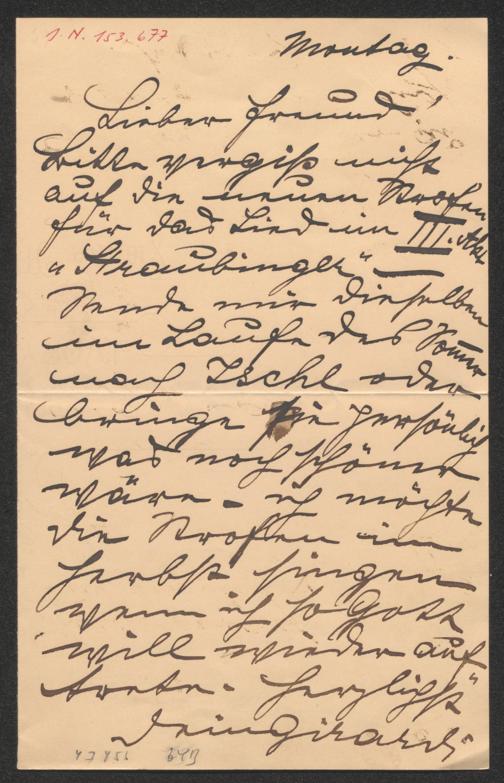 I. N. 153.677
Montag.
Lieber Freund!
Bitte vergiß nicht
auf die neuen Strofen
für das Lied im III. Akt
„Straubinger“ —
Sende mir dieselben
im Laufe des Somer
nach Ischl oder
bringe sie persönlich
was noch schöner
wäre - ich möchte
die Strofen im
Herbst singen
wenn ich so Gott
will wieder auf
trete. Herzlichst
Dein Girardi